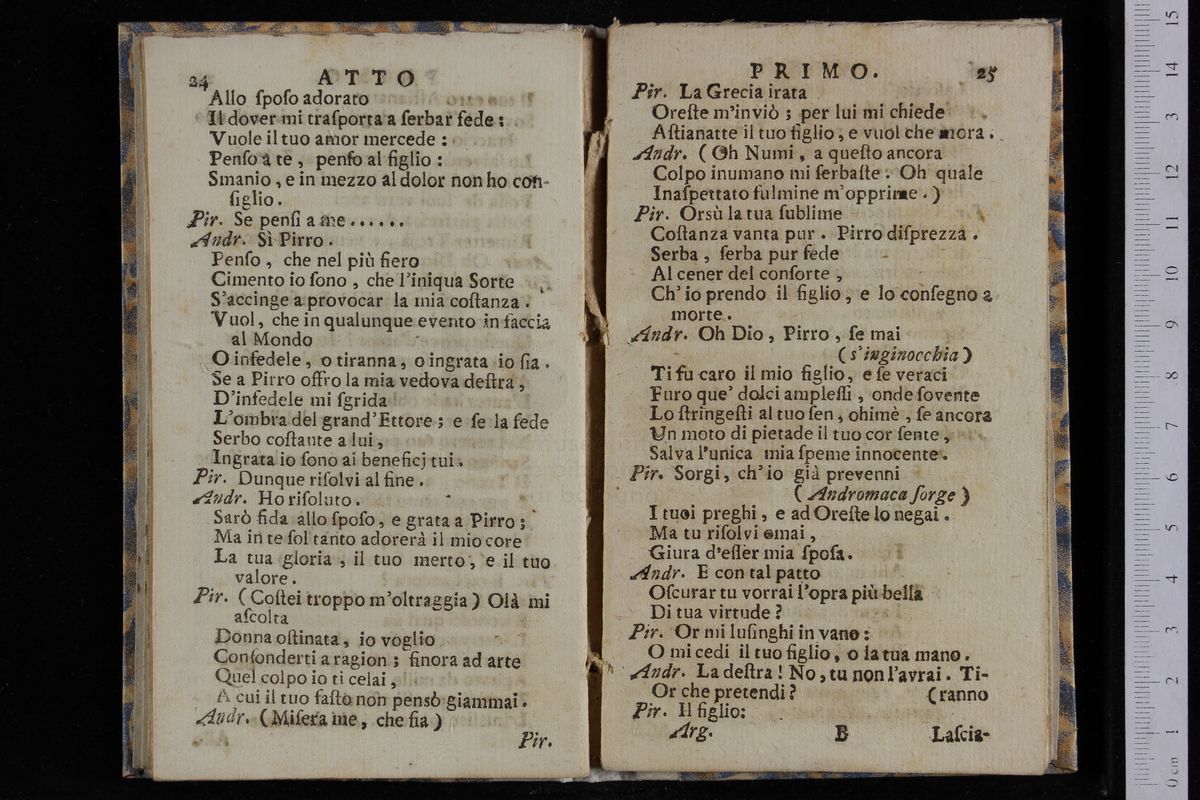 24 ATTO
Allo ſpoſo adorato
Il dover mi traſporta a ſerbar fede:
Vuole il tuo amor mercede:
Penſo a te, penſo al figlio:
Smanio, e in mezzo al dolor non ho con-
ſiglio.
Pir. Se penſi a me......
Andr. Sì Pirro.
Penſo, che nel più fiero
Cimento io ſono, che l'iniqua Sorte
S'accinge a provocar la mia coſtanza.
Vuol, che in qualunque evento in faccia
al Mondo
O infedele, o tiranna, o ingrata io ſia.
Se a Pirro offro la mia vedova deſtra,
D'infedele mi ſgrida
L'ombra del grand'Ettore; e ſe la fede
Serbo coſtante a lui,
Ingrata io ſono ai beneficj tui.
Pir. Dunque riſolvi al fine.
Andr. Ho riſoluto.
Sarò fida allo ſpoſo, e grata a Pirro;
Ma in te ſol tanto adorerà il mio core
La tua gloria, il tuo merto, e il tuo
valore.
Pir. (Coſtei troppo m'oltraggia) Olà mi
aſcolta
Donna oſtinata, io voglio
Confonderti a ragion; finora ad arte
Quel colpo io ti celai,
A cui il tuo faſto non pensò giammai.
Andr. (Miſera me, che ſia)
Pir.
PRIMO. 25
Pir. La Grecia irata
Oreſte m'inviò; per lui mi chiede
Aſtianatte il tuo figlio, e vuol che mora.
Andr. (Oh Numi, a queſto ancora
Colpo inumano mi ſerbaſte. Oh quale
Inaſpettato fulmine m'opprime.)
Pir. Orsù la tua ſublime
Coſtanza vanta pur. Pirro diſprezza.
Serba, ſerba pur fede
Al cener del conſorte,
Ch'io prendo il figlio, e lo conſegno a
morte.
Andr. Oh Dio, Pirro, ſe mai
(s'inginocchia)
Ti fu caro il mio figlio, e ſe veraci
Furo que' dolci ampleſſi, onde ſovente
Lo ſtringeſti al tuo ſen, ohimè, ſe ancora
Un moto di pietade il tuo cor ſente,
Salva l'unica mia ſpeme innocente.
Pir. Sorgi, ch'io già prevenni
(Andromaca ſorge)
I tuoi preghi, e ad Oreſte lo negai.
Ma tu riſolvi omai,
Giura d'eſſer mia ſpoſa.
Andr. E con tal patto
Oſcurar tu vorrai l'opra più bella
Di tua virtude?
Pir. Or mi luſinghi in vano:
O mi cedi il tuo figlio, o la tua mano.
Andr. La deſtra! No, tu non l'avrai. Ti-
Or che pretendi? (ranno
Pir. Il figlio:
Arg. B Laſcia-
0 cm 1 2 3 4 5 6 7 8 9 10 11 12 3 14 15